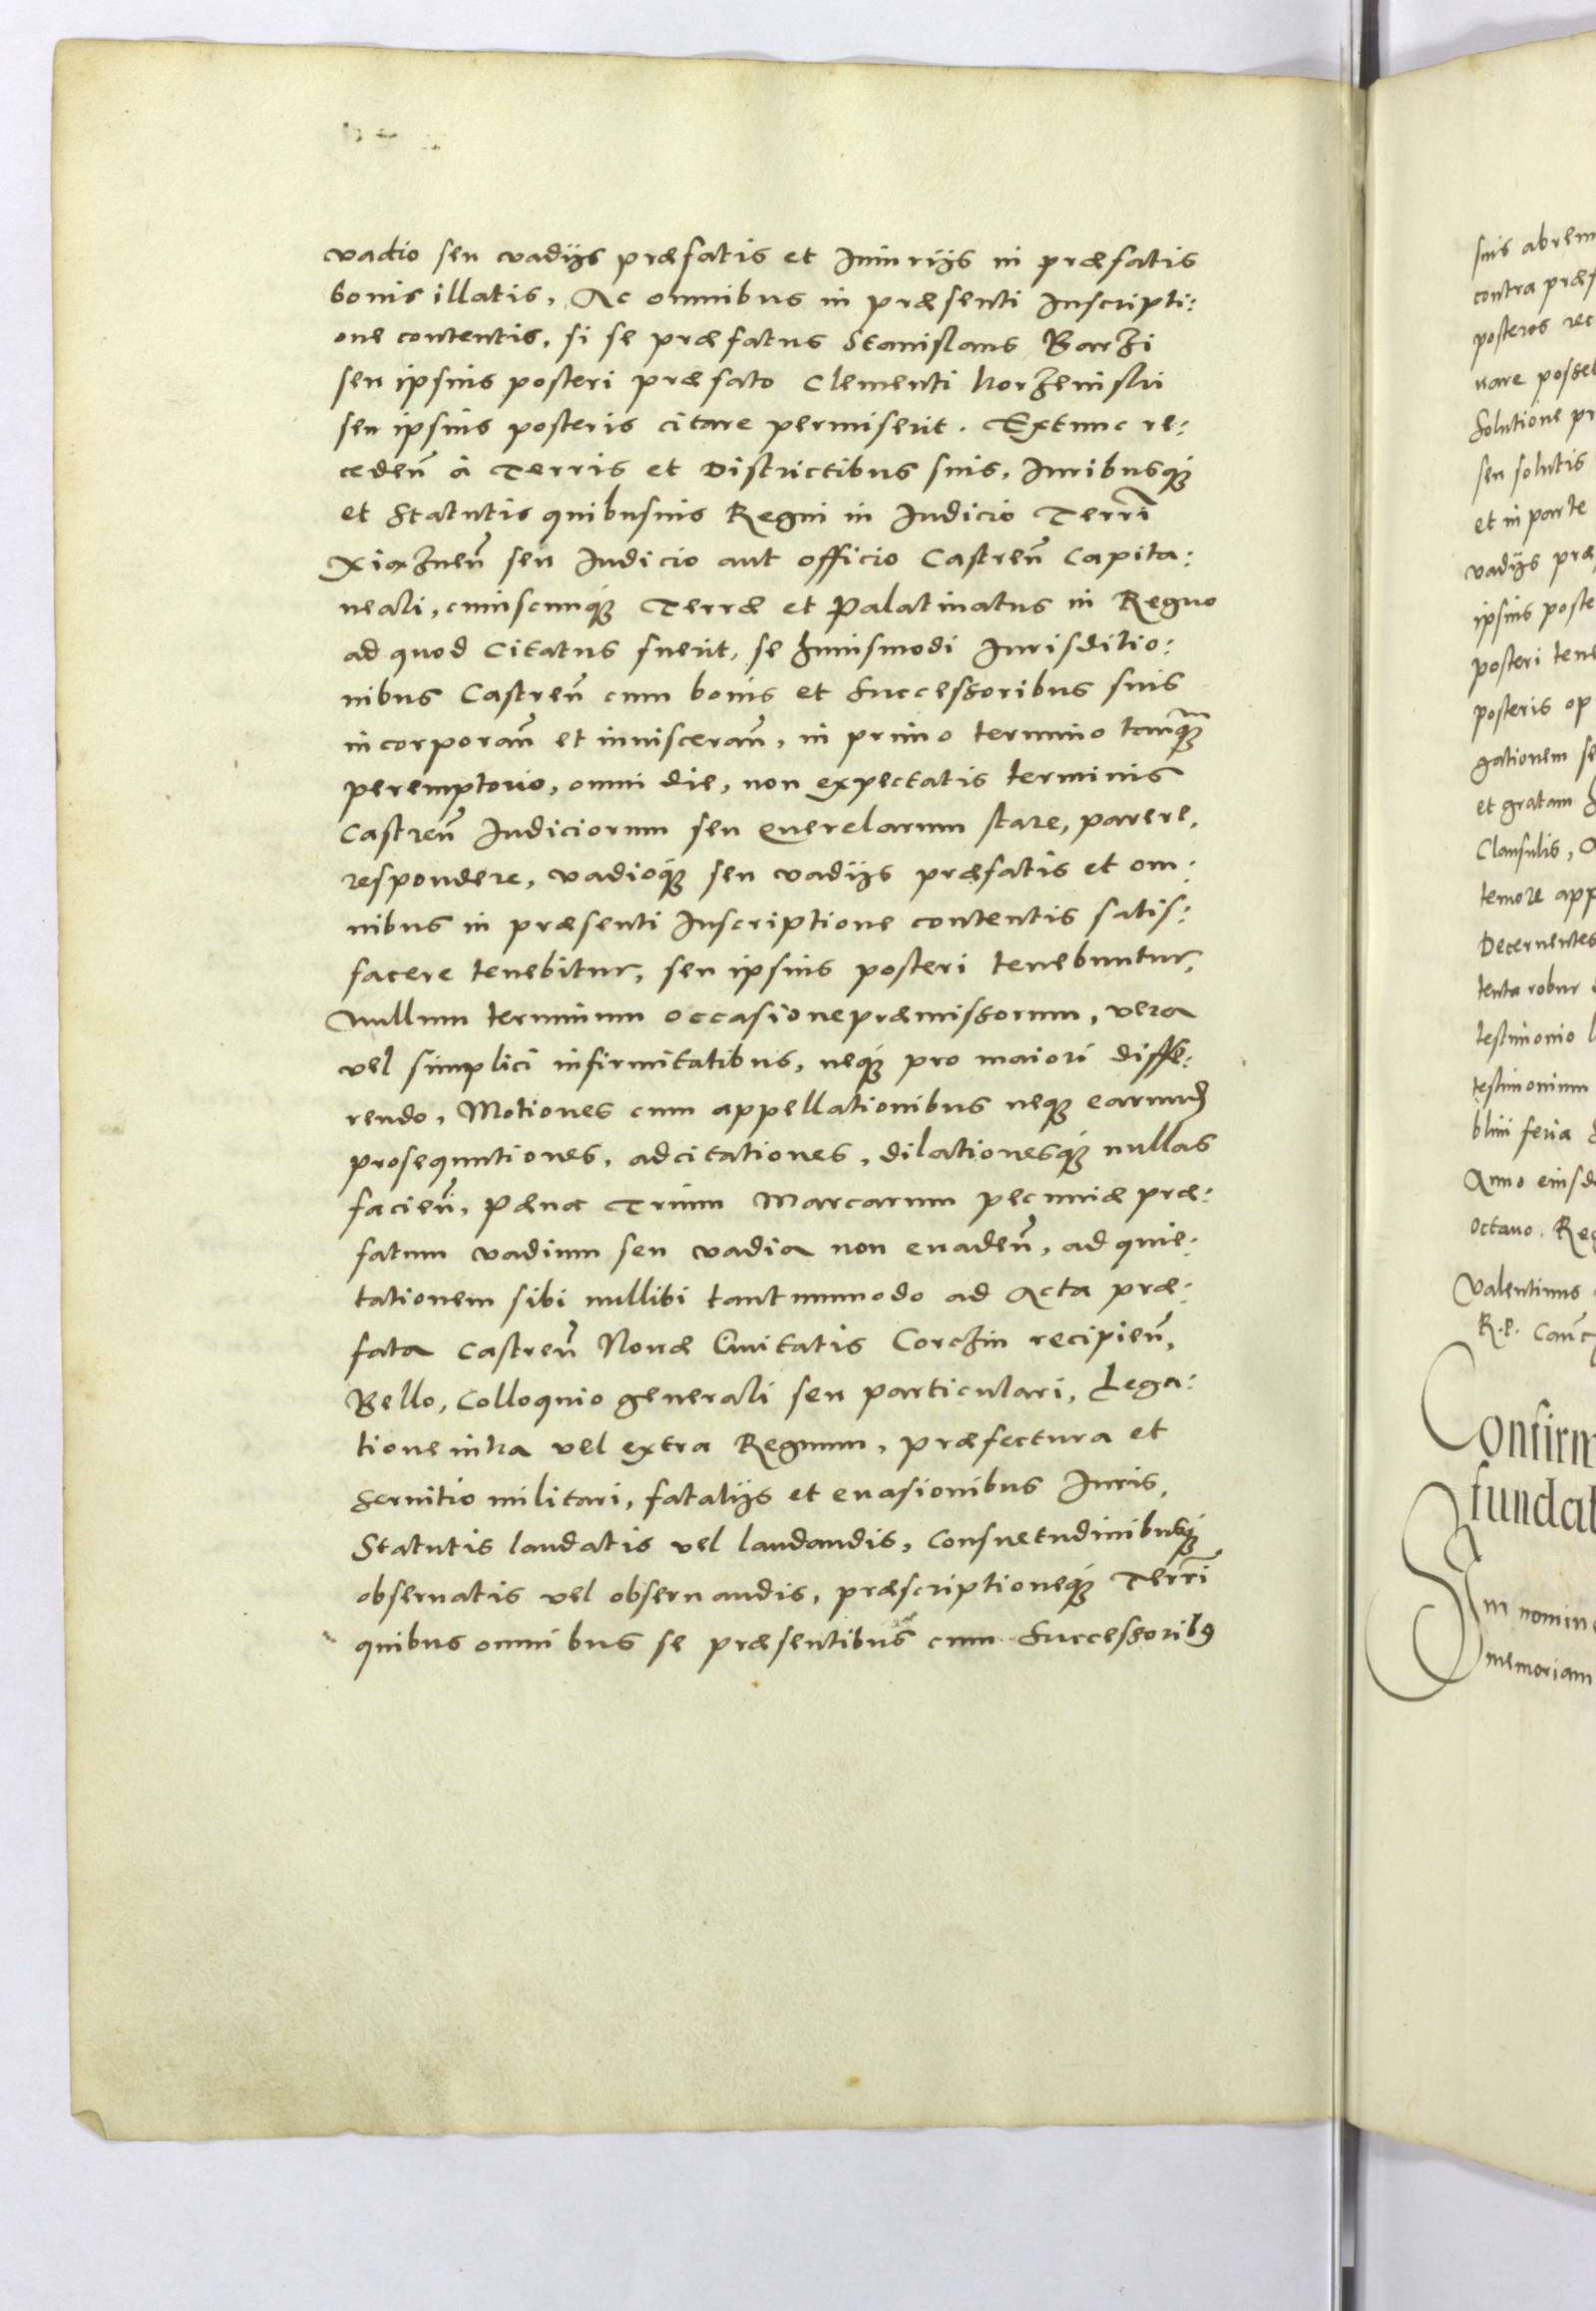 vadio seu vadijs præfatis et Iniurijs in præfatis
bonis illatis, Ac omnibus in præsenti Inscripti:
one contentis, si se præfatus Stanislaus Barzi
seu ipsius posteri præfato Clementi korzeniski
seu ipsius posteris citare permiserit. Extunc re:
cedeñ à Terris et Districtibus suis, Iuribusq́
et Statutis quibusuis Regni in Iudicio Terrñ
Xiążneñ seu Iudicio aut officio Castreñ Capita:
neali, cuiuscunq́ Terræ et Palatinatus in Regno
ad quod Citatus fuerit, se huiusmodi Iurisditio:
nibus Castreñ cum bonis et Successoribus suis
incorporañ et inuiscerañ, in primo termino tanq̃
peremptorio, omni die, non expectatis terminis
Castreñ Iudiciorum seu Querelarum stare, parere,
respondere, vadioq́ seu vadijs præfatis et om:
nibus in præsenti Inscriptione contentis satis:
facere tenebitur, seu ipsius posteri tenebuntur,
Nullum terminum occasione præmissorum, vera
vel simplici infirmitatibus, neq́ pro maiori diffe:
rendo, Motiones cum appellationibus neq earund
prosequutiones, adcitationes, dilationesq́ nullas
facieñ, Pæna Trium Marcarum pecuniæ præ:
fatum vadium seu vadia non euadeñ, ad quie:
tationem sibi nullibi tantummodo ad Acta præ:
fata Castreñ Nouæ Ciuitatis Corczin recipieñ,
Bello, Colloquio generali seu particulari, Lega:
tione intra vel extra Regnum, præfectura et
seruitio militari, fatalijs et euasionibus Iuris,
Statutis laudatis vel laudandis, Consuetudinibusq́
obseruatis vel obseruandis, præscriptioneq́ Terrñ
quibus omnibus se præsentibus cum Successorib9
suis abren
contra præf
posteros rec
uare posset
Solutione pr
seu solutis
et in parte
vadijs præ
ipsius poste
posteri tene
posteris op
gationem se
et gratam
Clausulis,
temore app
Decernentes
tenta robur
testimonio
testimonium
blini feria
Anno eiusd
octauo. Reg
Valentinus
R. P. Canc
Confirm
fundat
In nomin
memoriam